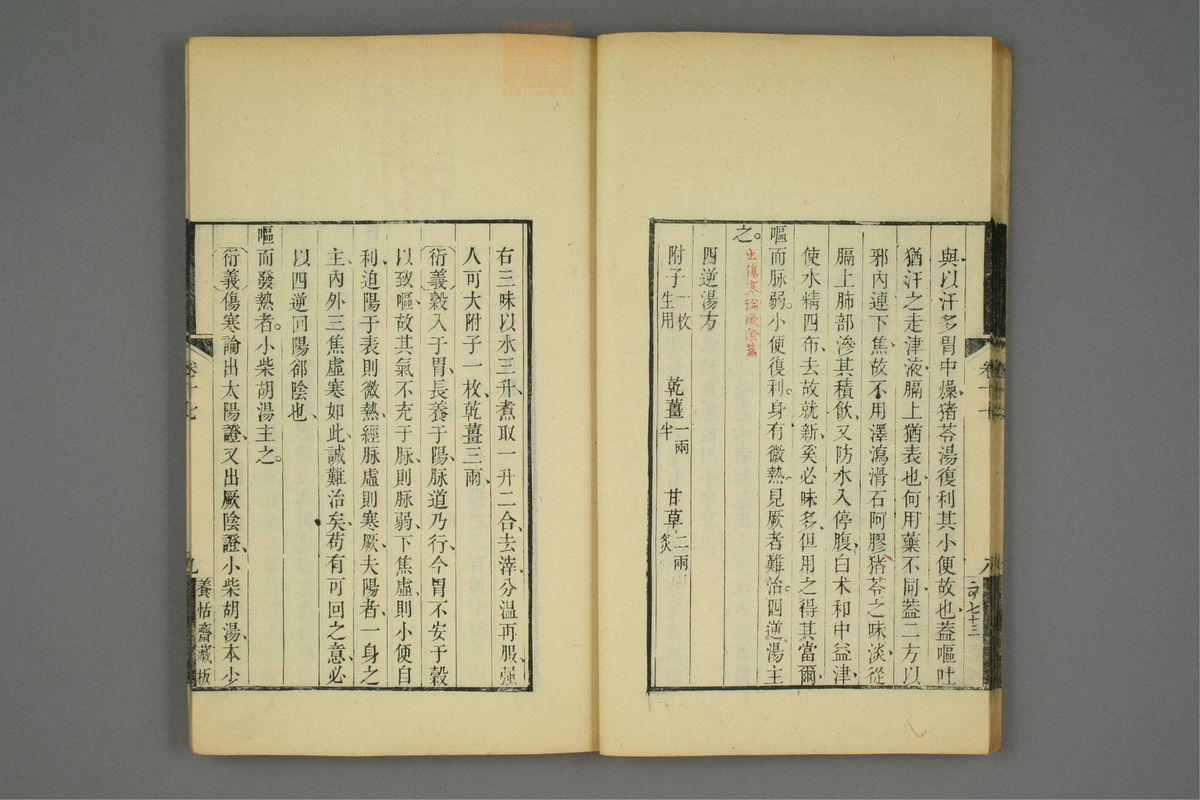 與以汗多胃中燥猪苓湯復利其小便故也蓋嘔吐
猶汗之走津液膈上猶表也何用藥不同蓋二方以
邪內連下焦故不用澤瀉滑石阿膠猪苓之味淡從
膈上肺部滲其積飲又防水入停腹白术和中益津
使水精四布去故就新奚必味多但用之得其當爾
嘔而脉弱小便復利身有微熱見厥者難治四逆湯主
之。
出傷寒論厥陰篇
四逆湯方
附子一枚生用 乾薑一兩半 甘草二兩炙
卷十七
八
右三味以水三升煮取一升二合去滓分溫再服强
人可大附子一枚乾薑三兩
衍義穀入于胃長養于陽脉道乃行今胃不安于穀
以致嘔故其氣不充于脉則脉弱下焦虛則小便自
利迫陽于表則微熱經脉虛則寒厥夫陽者一身之
主內外三焦虛寒如此誠難治矣苟有可回之意必
以四逆回陽郤陰也
嘔而發熱者小柴胡湯主之。
衍義傷寒論出太陽證又出厥陰證小柴胡湯本少
卷十七
九
養恬齋藏板